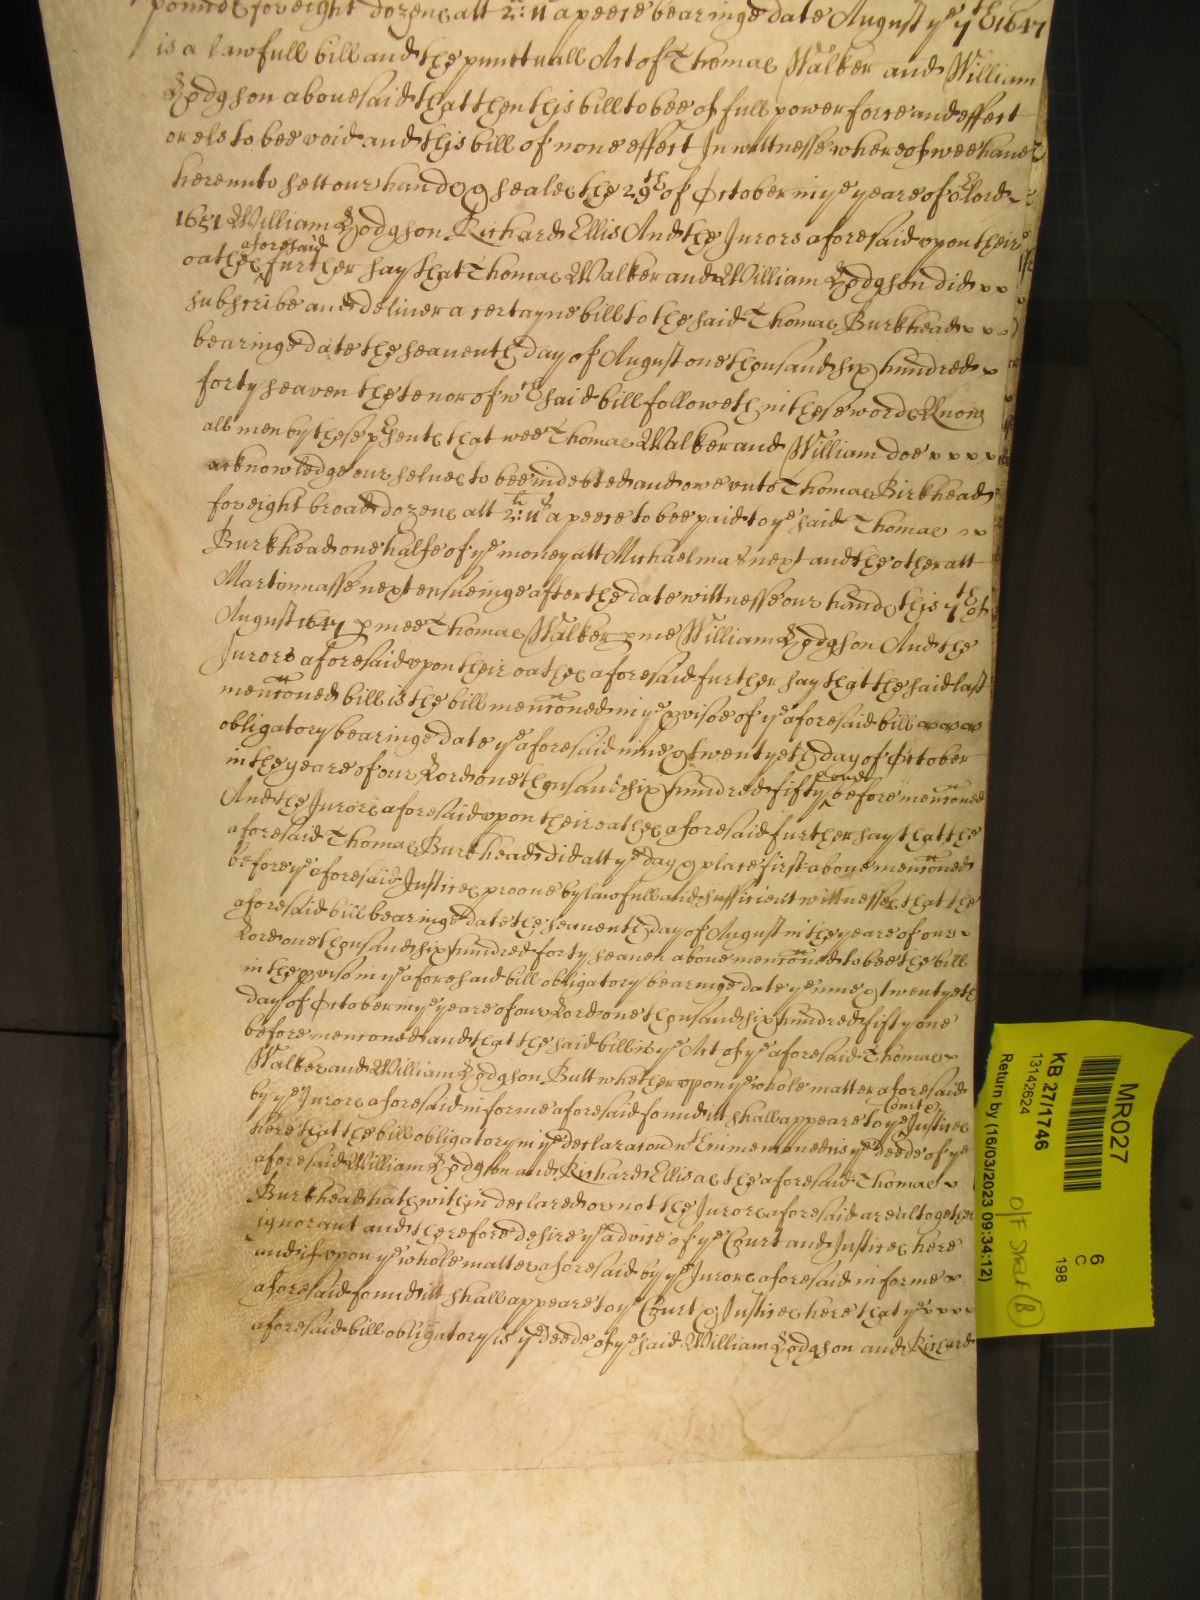 pounds for eight dozens att 2: 11s a peece bearinge date August ye 7th 1647
is a lawfull bill and the punctuall Act of Thomas Walker and William
Hodgson abovesaid that then this bill to bee of full power force and effect
or els to bee void and this bill of none effect In wittnesse whereof wee have
hereunto sett our hands & seales the 29th of October in ye yeare of or Lord
1651 William Hodgson Richard Ellis And the Jurors aforesaid upon their
oathes aforesaid further say that Thomas Walker and William Hodgson did
subscribe and deliver a certayne bill to the said Thomas Burkhead
bearinge date the seaventh day of August one thousand six hundred
forty seaven the tenor of wch said bill followeth in these words Know
all men by these psents that wee Thomas Walker and William doe
acknowledge our selves to bee indebted and owe unto Thomas Birkhead
for eight broad dozens att 2: 11s a peece to bee paid to ye said Thomas
Burkhead one halfe of ye money att Michaelmas next and the other att
Martinmasse next ensueinge after the date wittnesse our hands this 7th of
August 1647 p mee Thomas Walker p me William Hodgson And the
Jurors aforesaid upon their oathes aforesaid further say that the said last
menconed bill is the bill menconed in ye pvisoe of ye aforesaid bill
obligatory bearinge date ye aforesaid nine & twentyeth day of October
in the yeare of our Lord one thousand six hundred fifty one before menconed
And the Jurors aforesaid upon their oathes aforesaid further say that the
aforesaid Thomas Burkhead did att ye day & place first above menconed
before ye aforesaid Justices proove by lawfull and sufficient wittnesses that the
aforesaid bill bearinge date the seaventh day of August in the yeare of our
Lord one thousand six hundred forty seaven above menconed to bee the bill
in the pviso in ye aforesaid bill obligatory bearinge date ye nine & twentyeth
day of October in ye yeare of our Lord one thousand six hundred fifty one
before menconed and that the said bill is ye Act of ye aforesaid Thomas
Walker and William Hodgson Butt whether upon ye whole matter aforesaid
by ye Jurors aforesaid in forme aforesaid found itt shall appeare to ye Courte Justices
here that the bill obligatory in ye declaracon wthin menconed is ye deede of ye
aforesaid William Hodgson and Richard Ellis as the aforesaid Thomas
Burkhead hath within declared or not the Jurors aforesaid are altogether
ignorant and therefore desire ye advice of ye Court and Justices here
and if upon ye whole matter aforesaid by ye Jurors aforesaid in forme
aforesaid found itt shall appeare to ye Court & Justices here that ye
aforesaid bill obligatory is ye deede of ye said William Hodgson and Richard
MR027
KB 27/1746
13142624
Return by (16/03/2023 09:34:12)
6
C
198
O/F Shelf (B)